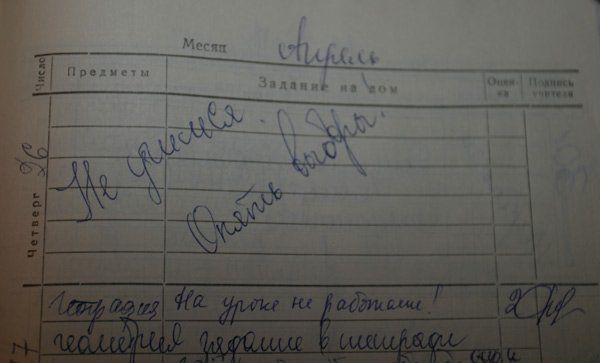 Месяц Апрель
Число Предметы Задание на дом Оцен-ка Подпись учителя
Четверг 26
Не учимся.
Опять выборы!
География На уроке не работаешь! 2
7 геометрия задание в тетради